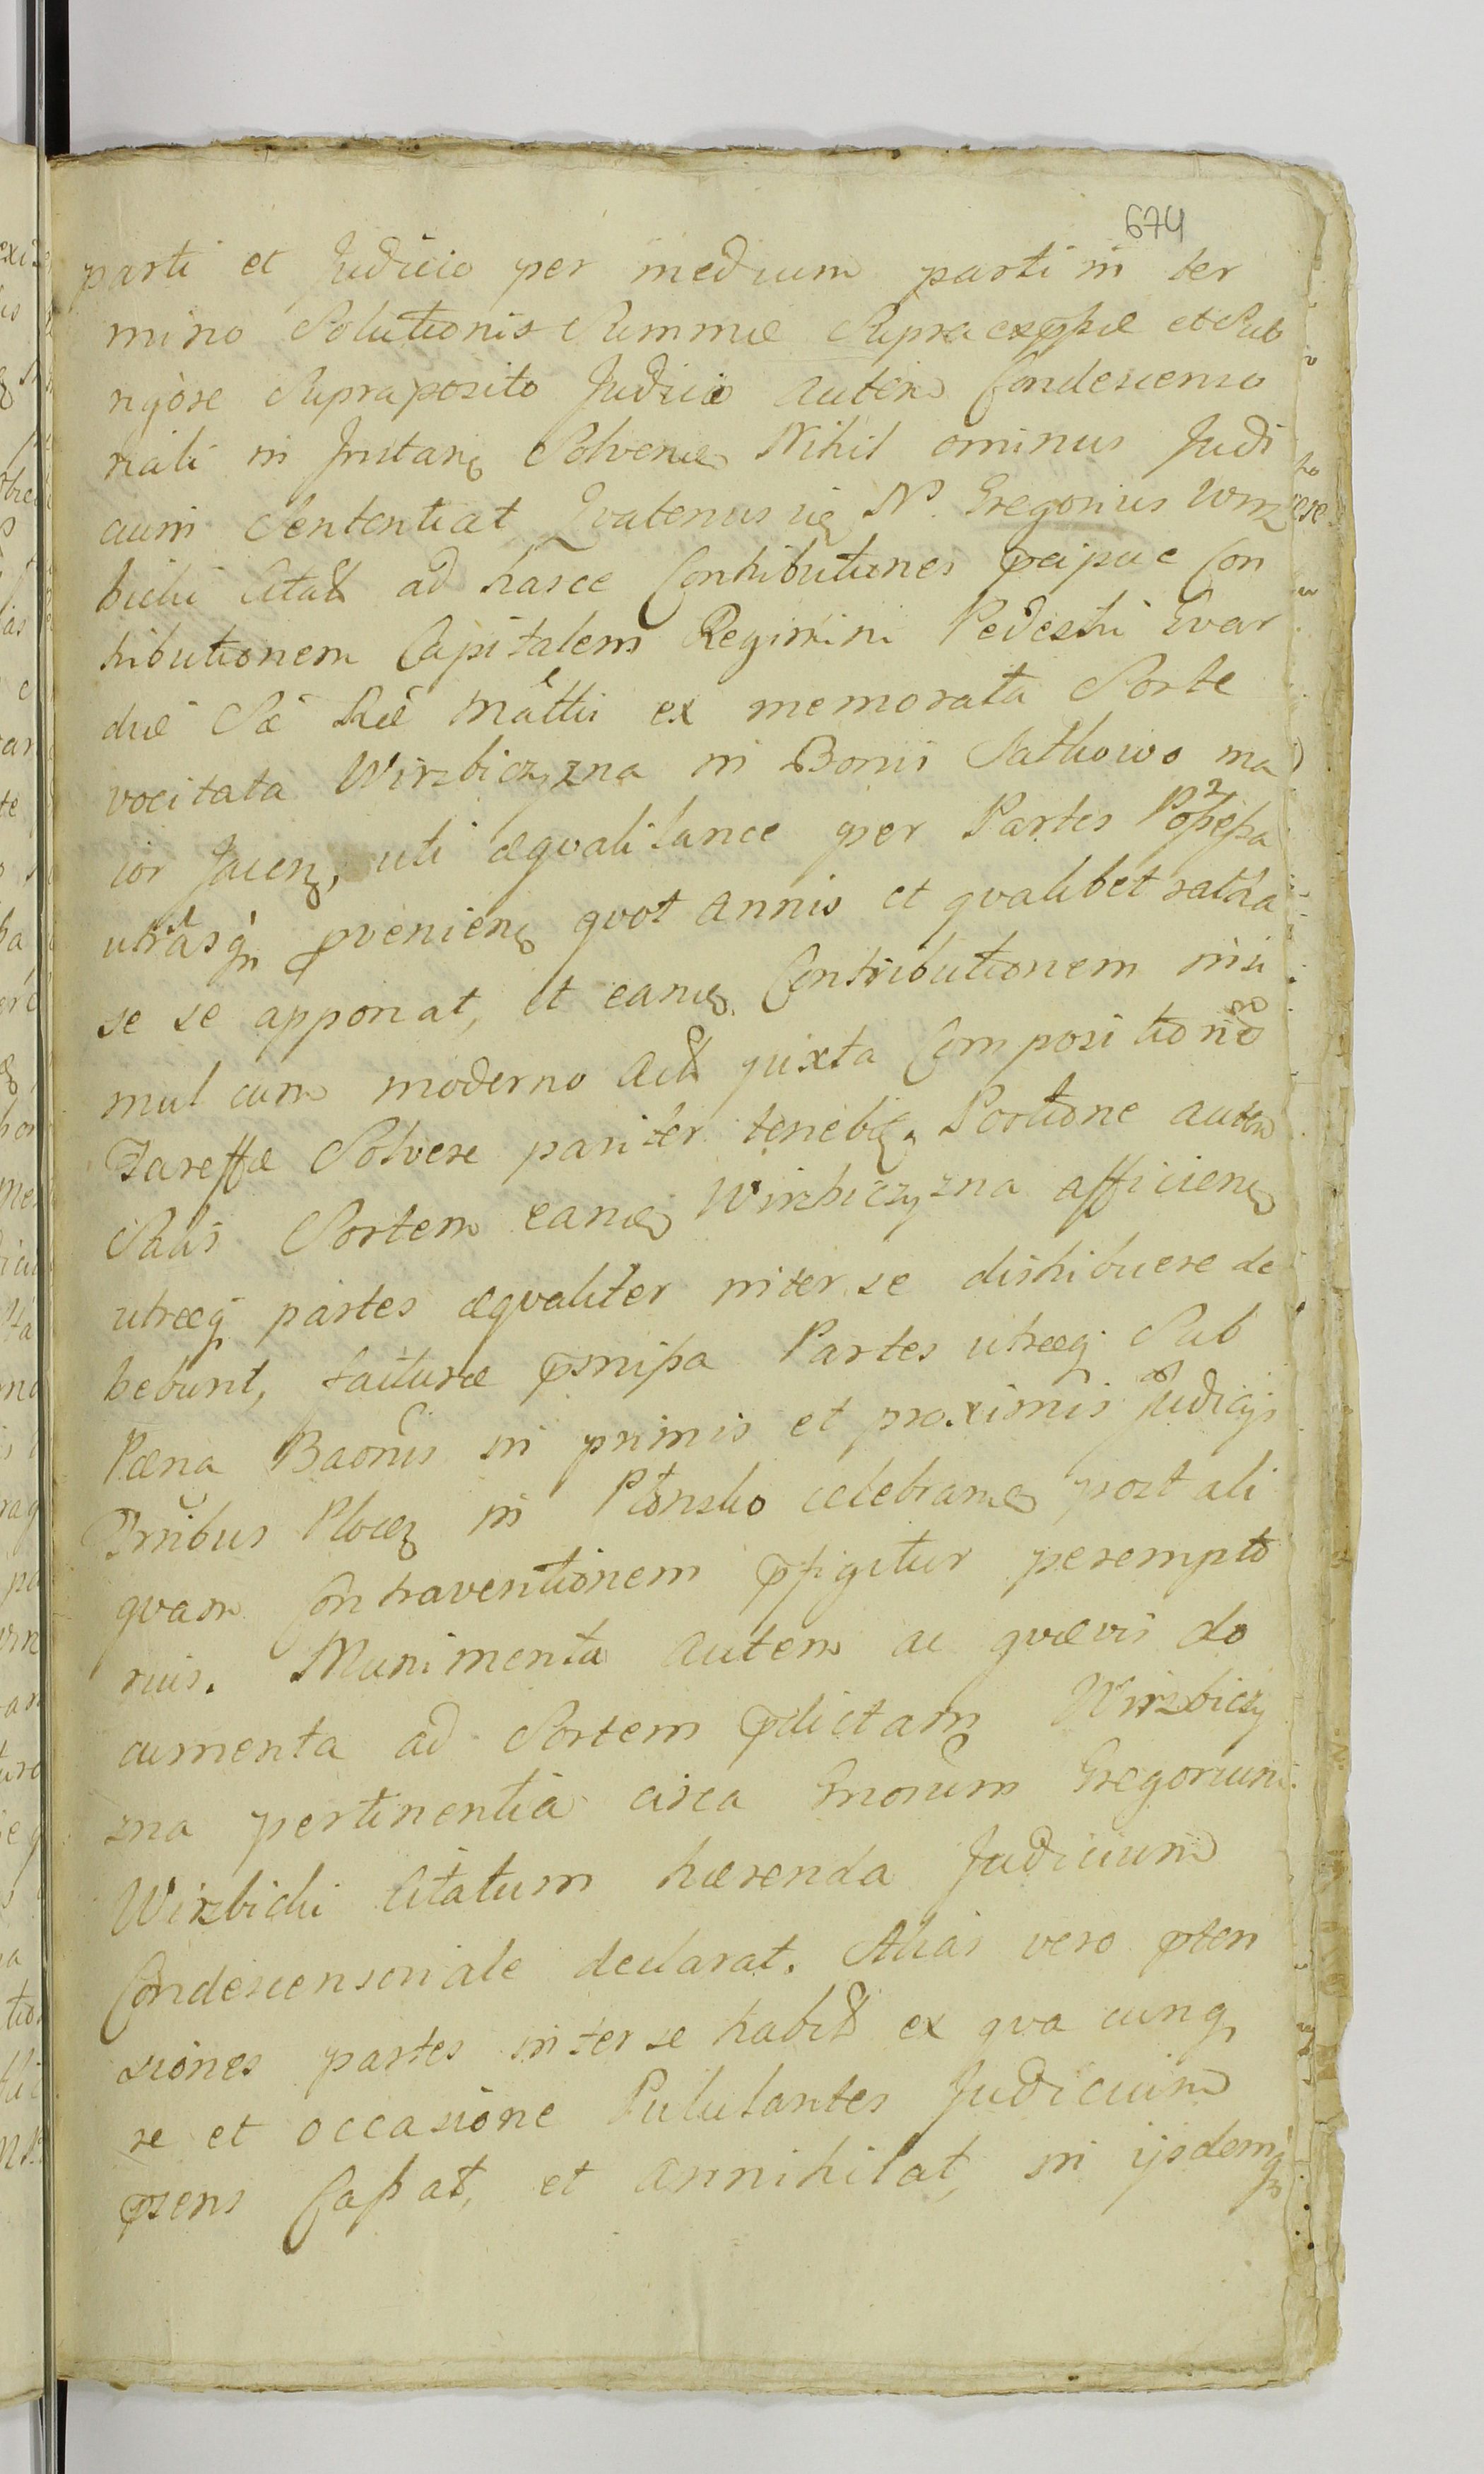 674
parti et Judicio per medium parti in ter
mino Solutionis Summæ Supra et Sub
rigore Supraposito Judicio autem Condescenso
riali in Instanę Solvenę Nihil ominus Judi
cium Sententiat Qvatenus No. Gregorius Wirz
bicki Citat ad hasce Contributiones pcipue Con
tributionem Capitalem Regimini Pedestri Gvar
diæ Sæ Ræ Mattis ex memorata Sorte
vocitata Wirzbiczyzna in Bonis Sathowo ma
ior Jacenę, uti æqvali lance per Partes
utrasq pvenienę qvot annis et qvalibet ratha
se se apponat, et eandę Contributionem insi
mul cum moderno Act juxta Compositione
Tareffæ Solvere pariter tenebę. Portione autem
Salis Sortem eandę Wirzbiczyzna afficienę
utræq partes æqvaliter inter se distribuere de
bebunt, facturæ præmissa Partes utræq Sub
Pæna Baonis in primis et proximis Judicijs
Trribus Plocę in Płonsko celebrandę post ali
qvam Contraventionem pfigitur perempto
rius. Munimenta autem ac qvævis do
cumenta ad Sortem pdictam Wirzbiczy
zna pertinentia circa Gnosum Gregorium
Wirzbicki Citatum hærenda Judicium
Condescensoriale declarat. Alias vero pten
siones partes inter se habit ex qva cunq
re et occasione Pululantes Judicium
psens Cassat, et annihilat, in ijsdemq